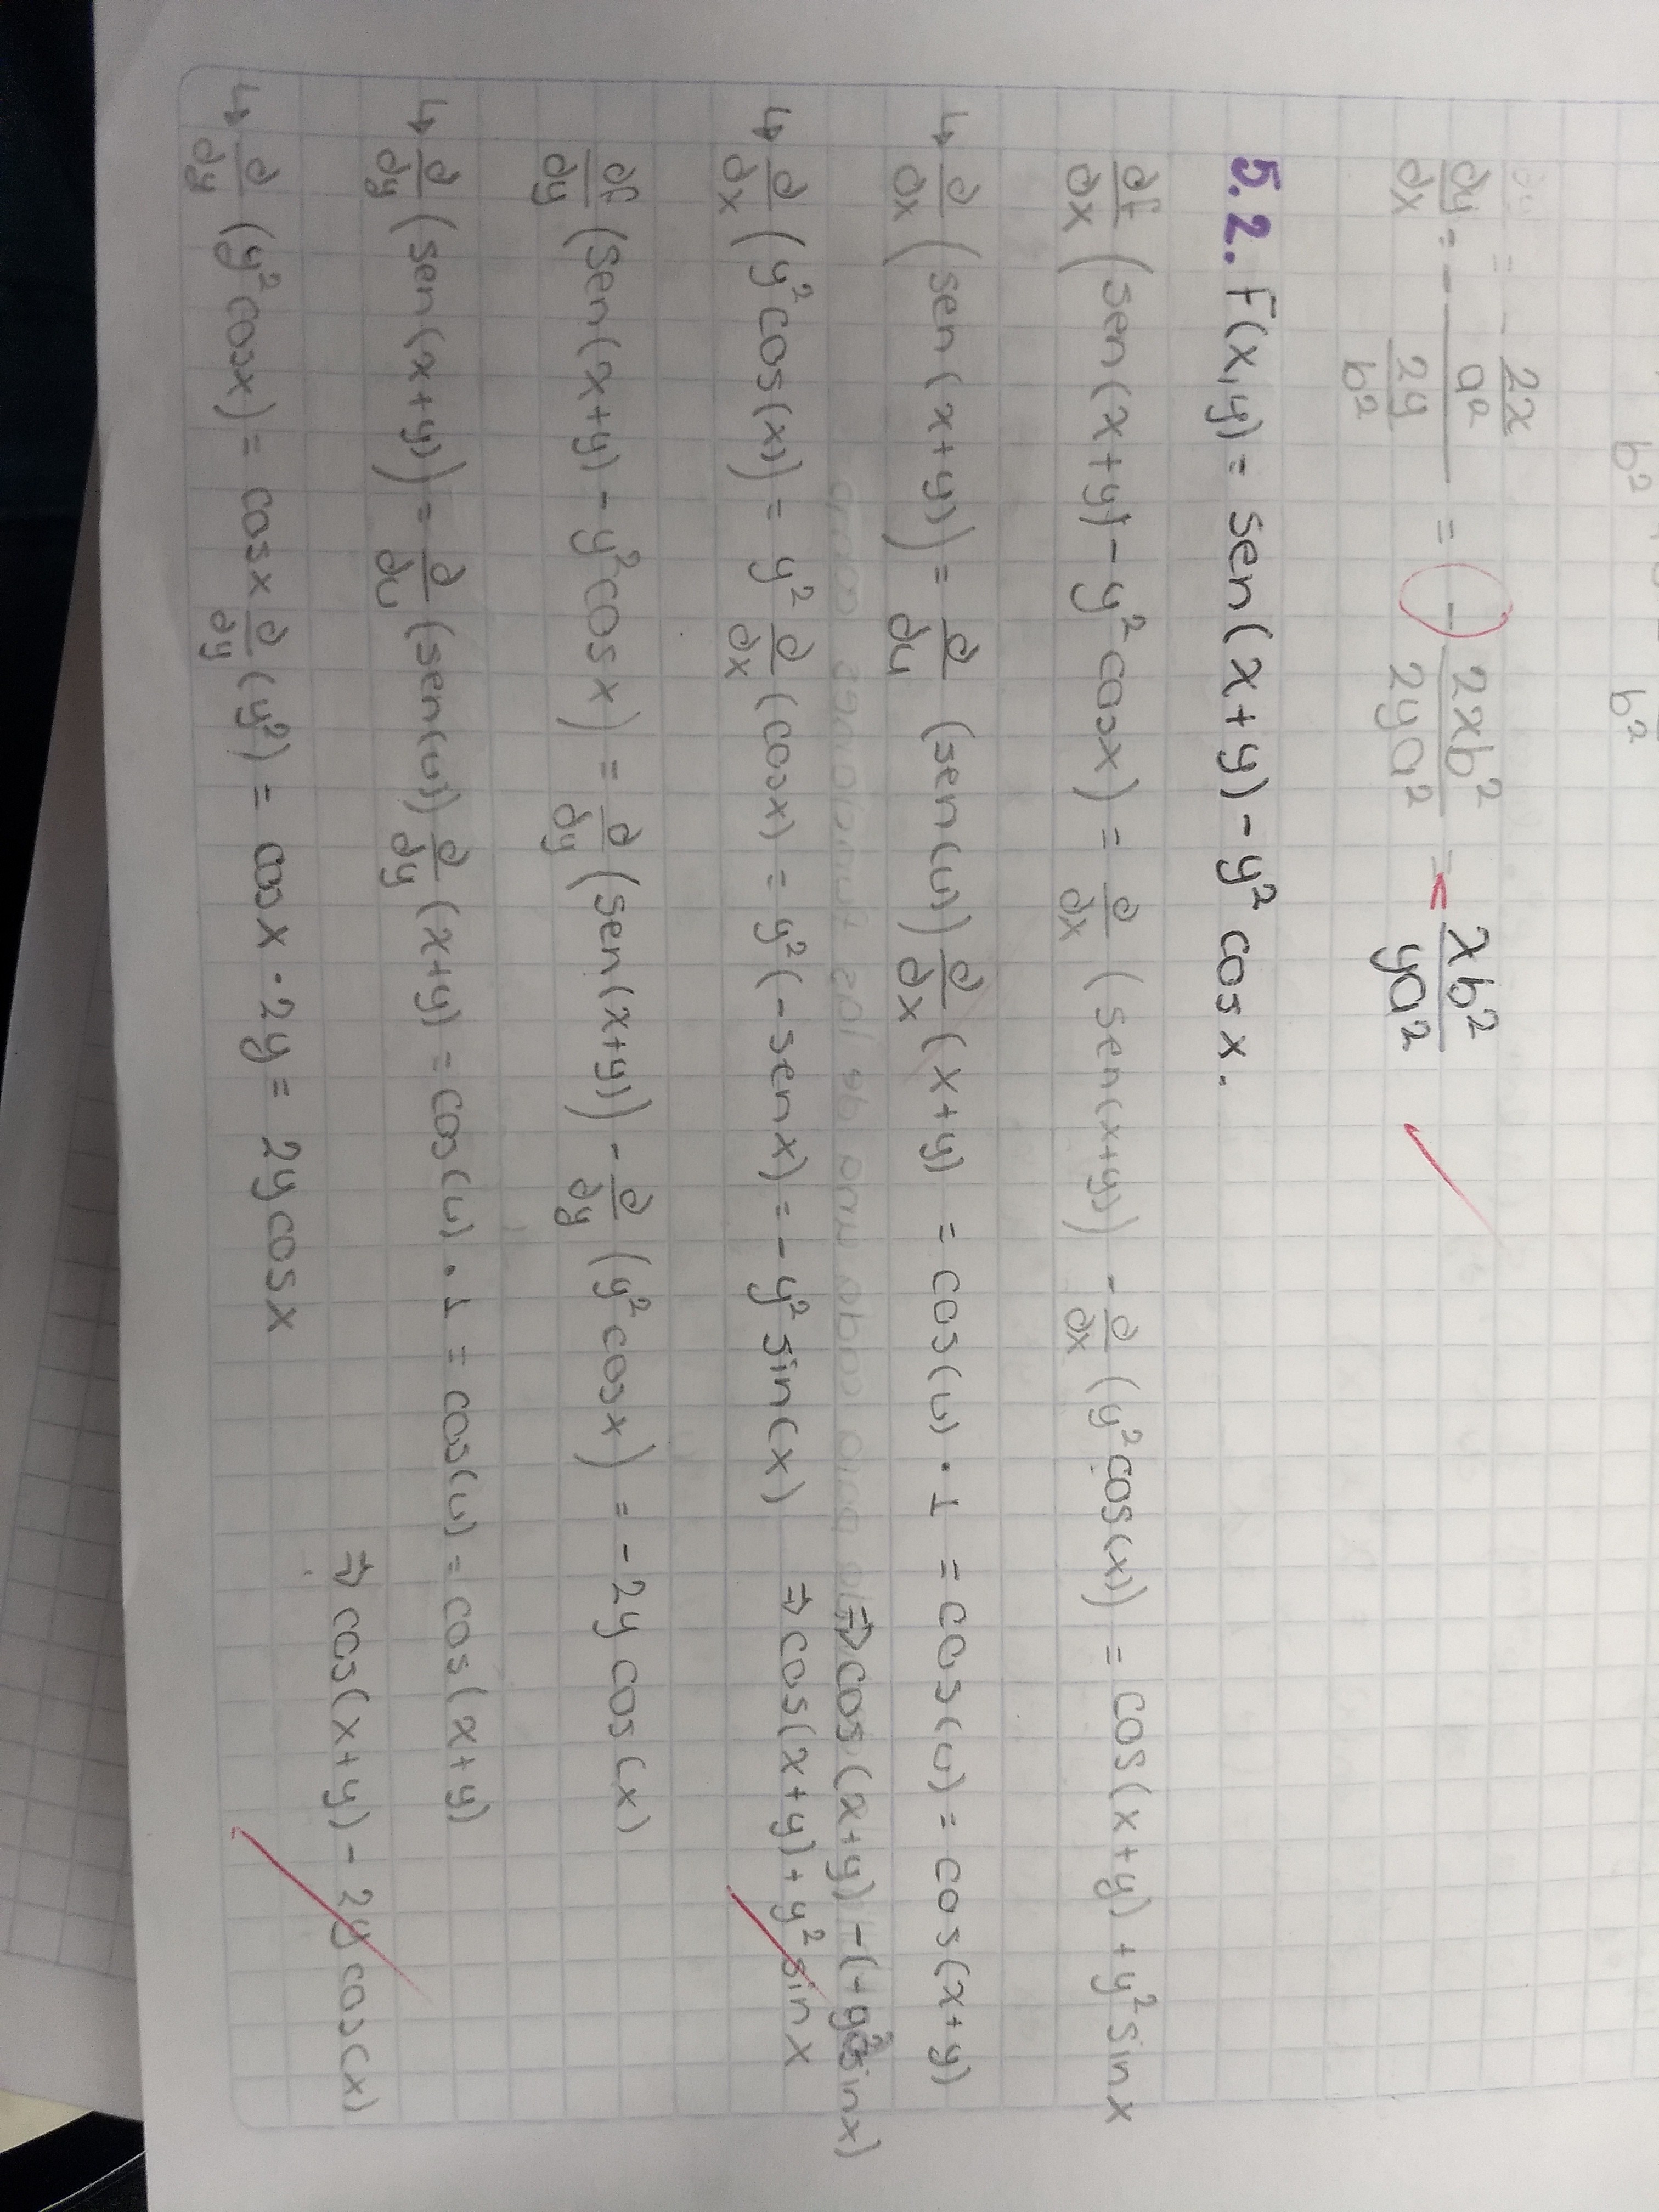 b² b²
∂y/∂x = - (2x/a²)/(2y/b²) = - 2xb²/2ya² = xb²/ya²
5.2. F(x,y) = sen(x+y) - y² cosx.
∂f/∂x (sen(x+y) - y² cosx) = ∂/∂x (sen(x+y)) - ∂/∂x (y² cos(x)) = cos(x+y) + y² sinx
↳ ∂/∂x (sen(x+y)) = ∂/∂u (sen(u)) ∂/∂x (x+y) = cos(u) · 1 = cos(u) = cos(x+y)
⇒ cos(x+y) - (-y² sinx)
↳ ∂/∂x (y² cos(x)) = y² ∂/∂x (cosx) = y² (-senx) = -y² sin(x) ⇒ cos(x+y) + y² sinx
∂f/∂y (sen(x+y) - y² cosx) = ∂/∂y (sen(x+y)) - ∂/∂y (y² cosx) = -2y cos(x)
↳ ∂/∂y (sen(x+y)) = ∂/∂u (sen(u)) ∂/∂y (x+y) = cos(u) · 1 = cos(u) = cos(x+y)
⇒ cos(x+y) - 2y cos(x)
↳ ∂/∂y (y² cosx) = cosx ∂/∂y (y²) = cosx · 2y = 2y cosx